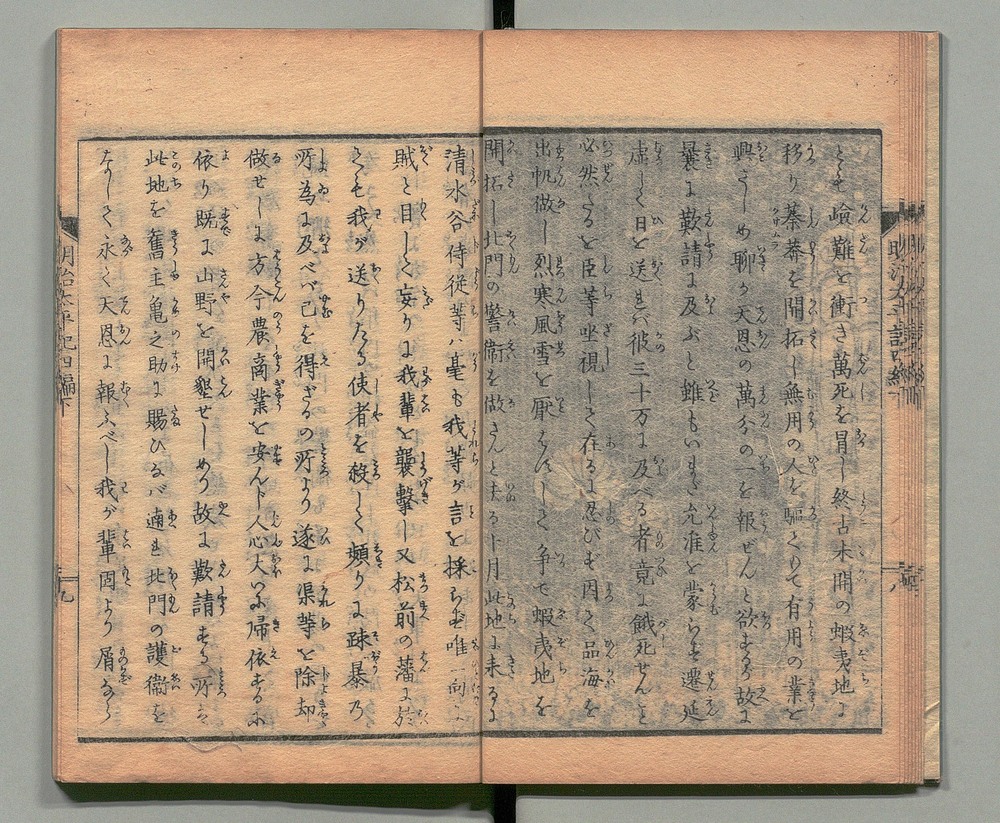 とも嶮難を衝き萬死を冒し終古未開の蝦夷地に
移り蓁莽を開拓し無用の人を駆とりて有用の業を
興さしめ聊か天恩の萬分の一を報ぜんと欲するが故に
曩に歎請に及ぶと雖もいまだ允准を蒙らず遷延
虚しく日を送らバ彼三十万に及べる者竟に餓死せんと
必然たるを臣等坐視して在るに忍びず因て品海を
出帆做し烈寒風雪を厭はずして争で蝦夷地を
開拓し北門の警衛を做さんと去る十月此地に来るに
清水谷侍従等ハ毫も我等が言を採らず唯一向に
賊と目して妄りに我輩を襲撃し又松前の藩に於
ても我が送りたる使者を殺して頻りに疎暴乃
所為に及べバ已を得ざるの所より遂に渠等を除却
做せしに方今農商業を安んド人心大いに帰依するに
依り既に山野を開墾せしめり故に歎請する所は
此地を舊主亀之助に賜ひなバ適も北門の護衛を
なして永く天恩に報ふべし我が輩固より屑なら
明治太平記四編下
九
八